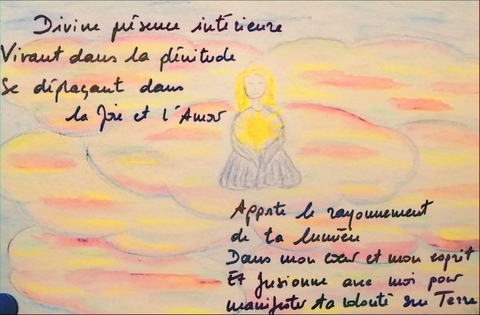 Divine présence intérieure
Vivant dans la plénitude
Se déplaçant dans
la Joie et l'Amour
Apporte le rayonnement
de ta lumière
Dans mon cœur et mon esprit
Et fusionne avec moi pour
manifester ta volonté sur Terre